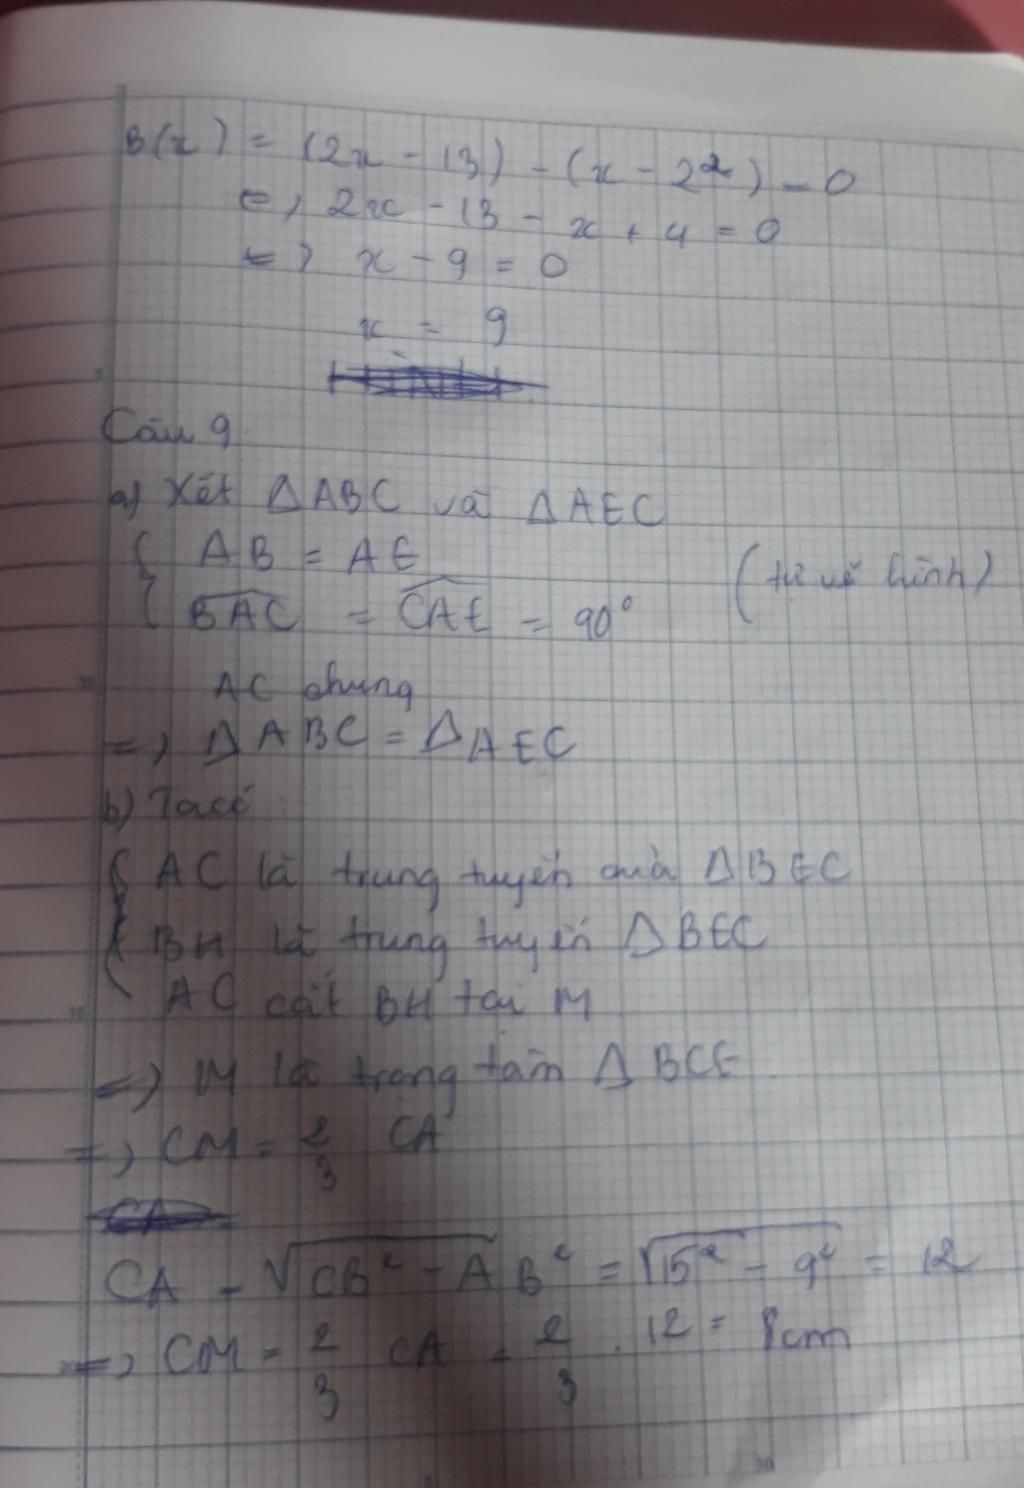 B(x) = (2x - 13) - (x - 2²) = 0
<=> 2x - 13 - x + 4 = 0
<=> x - 9 = 0
x = 9
Câu 9
a) Xét ΔABC và ΔAEC
{ AB = AE (tự vẽ hình)
BAC = CAE = 90°
AC chung
=> ΔABC = ΔAEC
b) Ta có:
{ AC là trung tuyến của ΔBEC
BH là trung tuyến ΔBEC
AC cắt BH tại M
=> M là trọng tâm ΔBCE
=> CM = 2/3 CA
CA = √CB² - AB² = √15² - 9² = 12
=> CM = 2/3 CA = 2/3 . 12 = 8cm